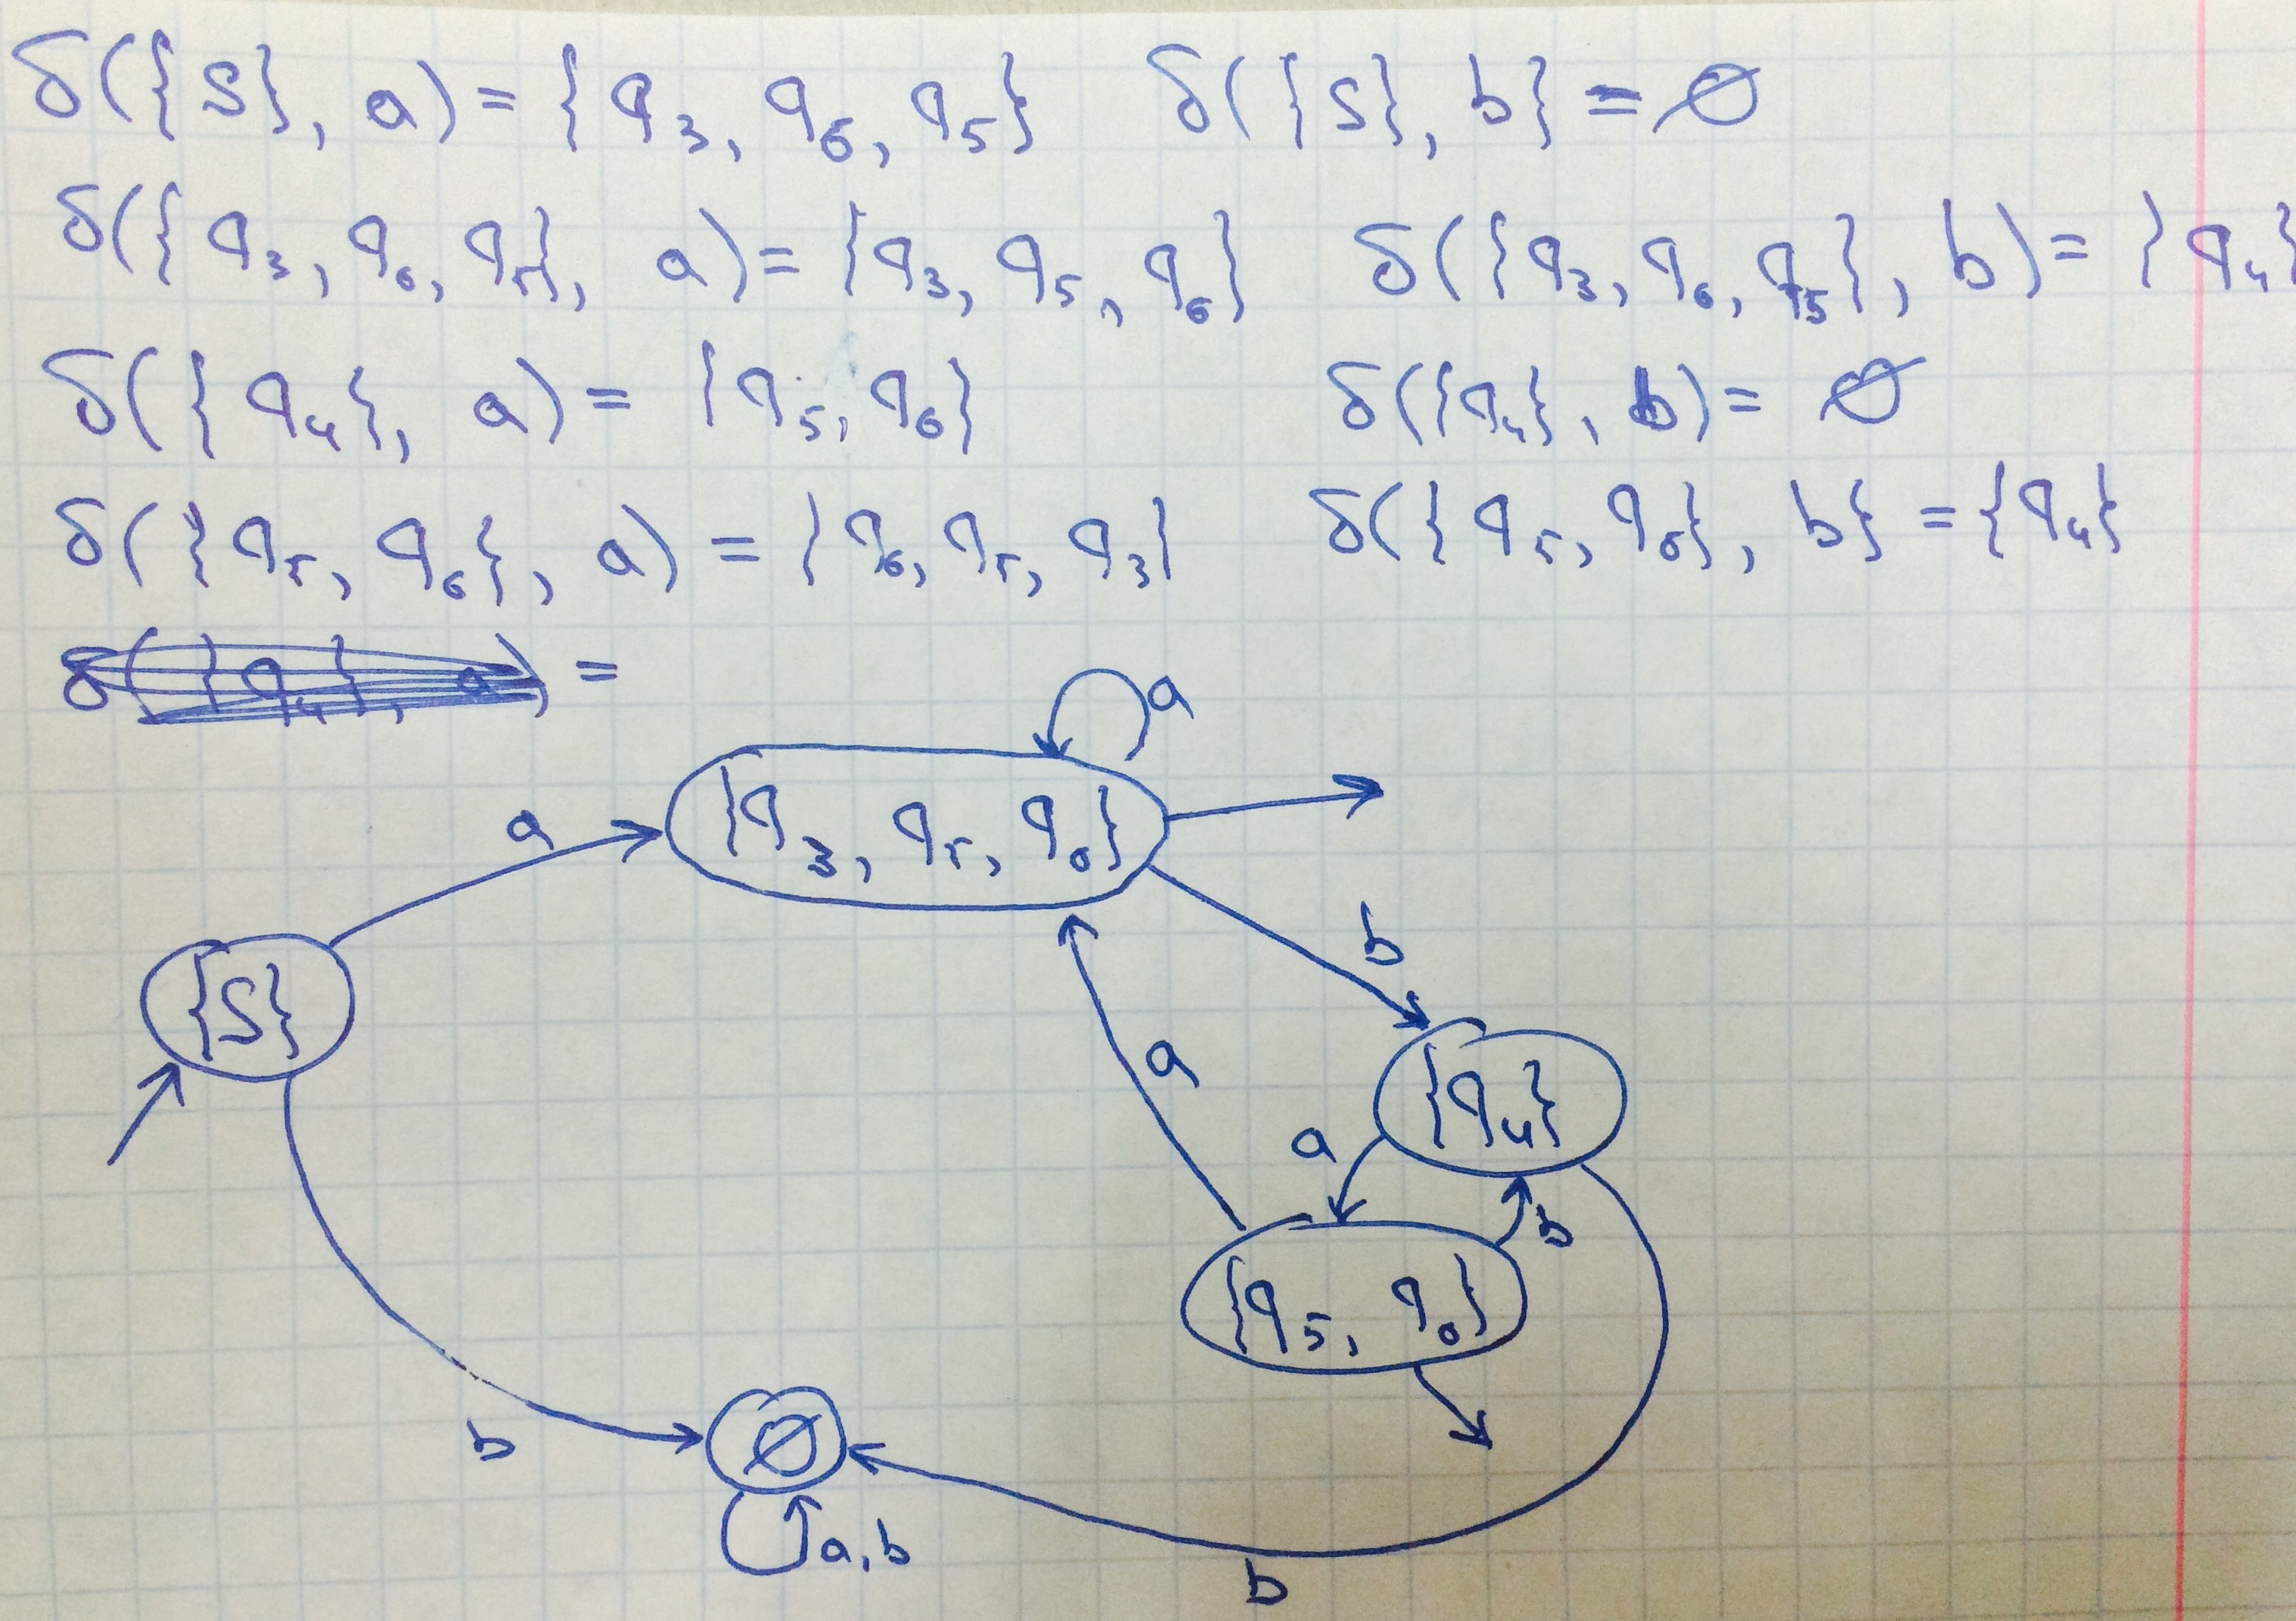 δ({S}, a) = {q₃, q₆, q₅} δ({S}, b} = ∅
δ({q₃, q₆, q₅}, a) = {q₃, q₅, q₆} δ({q₃, q₆, q₅}, b) = {q₄}
δ({q₄}, a) = {q₅, q₆} δ({q₄}, b) = ∅
δ({q₅, q₆}, a) = {q₆, q₅, q₃} δ({q₅, q₆}, b} = {q₄}
δ({q₄}, a) =
a
{q₃, q₅, q₆}
a
b
{S}
a
{q₄}
a
b
{q₅, q₆}
∅
b
a, b
b